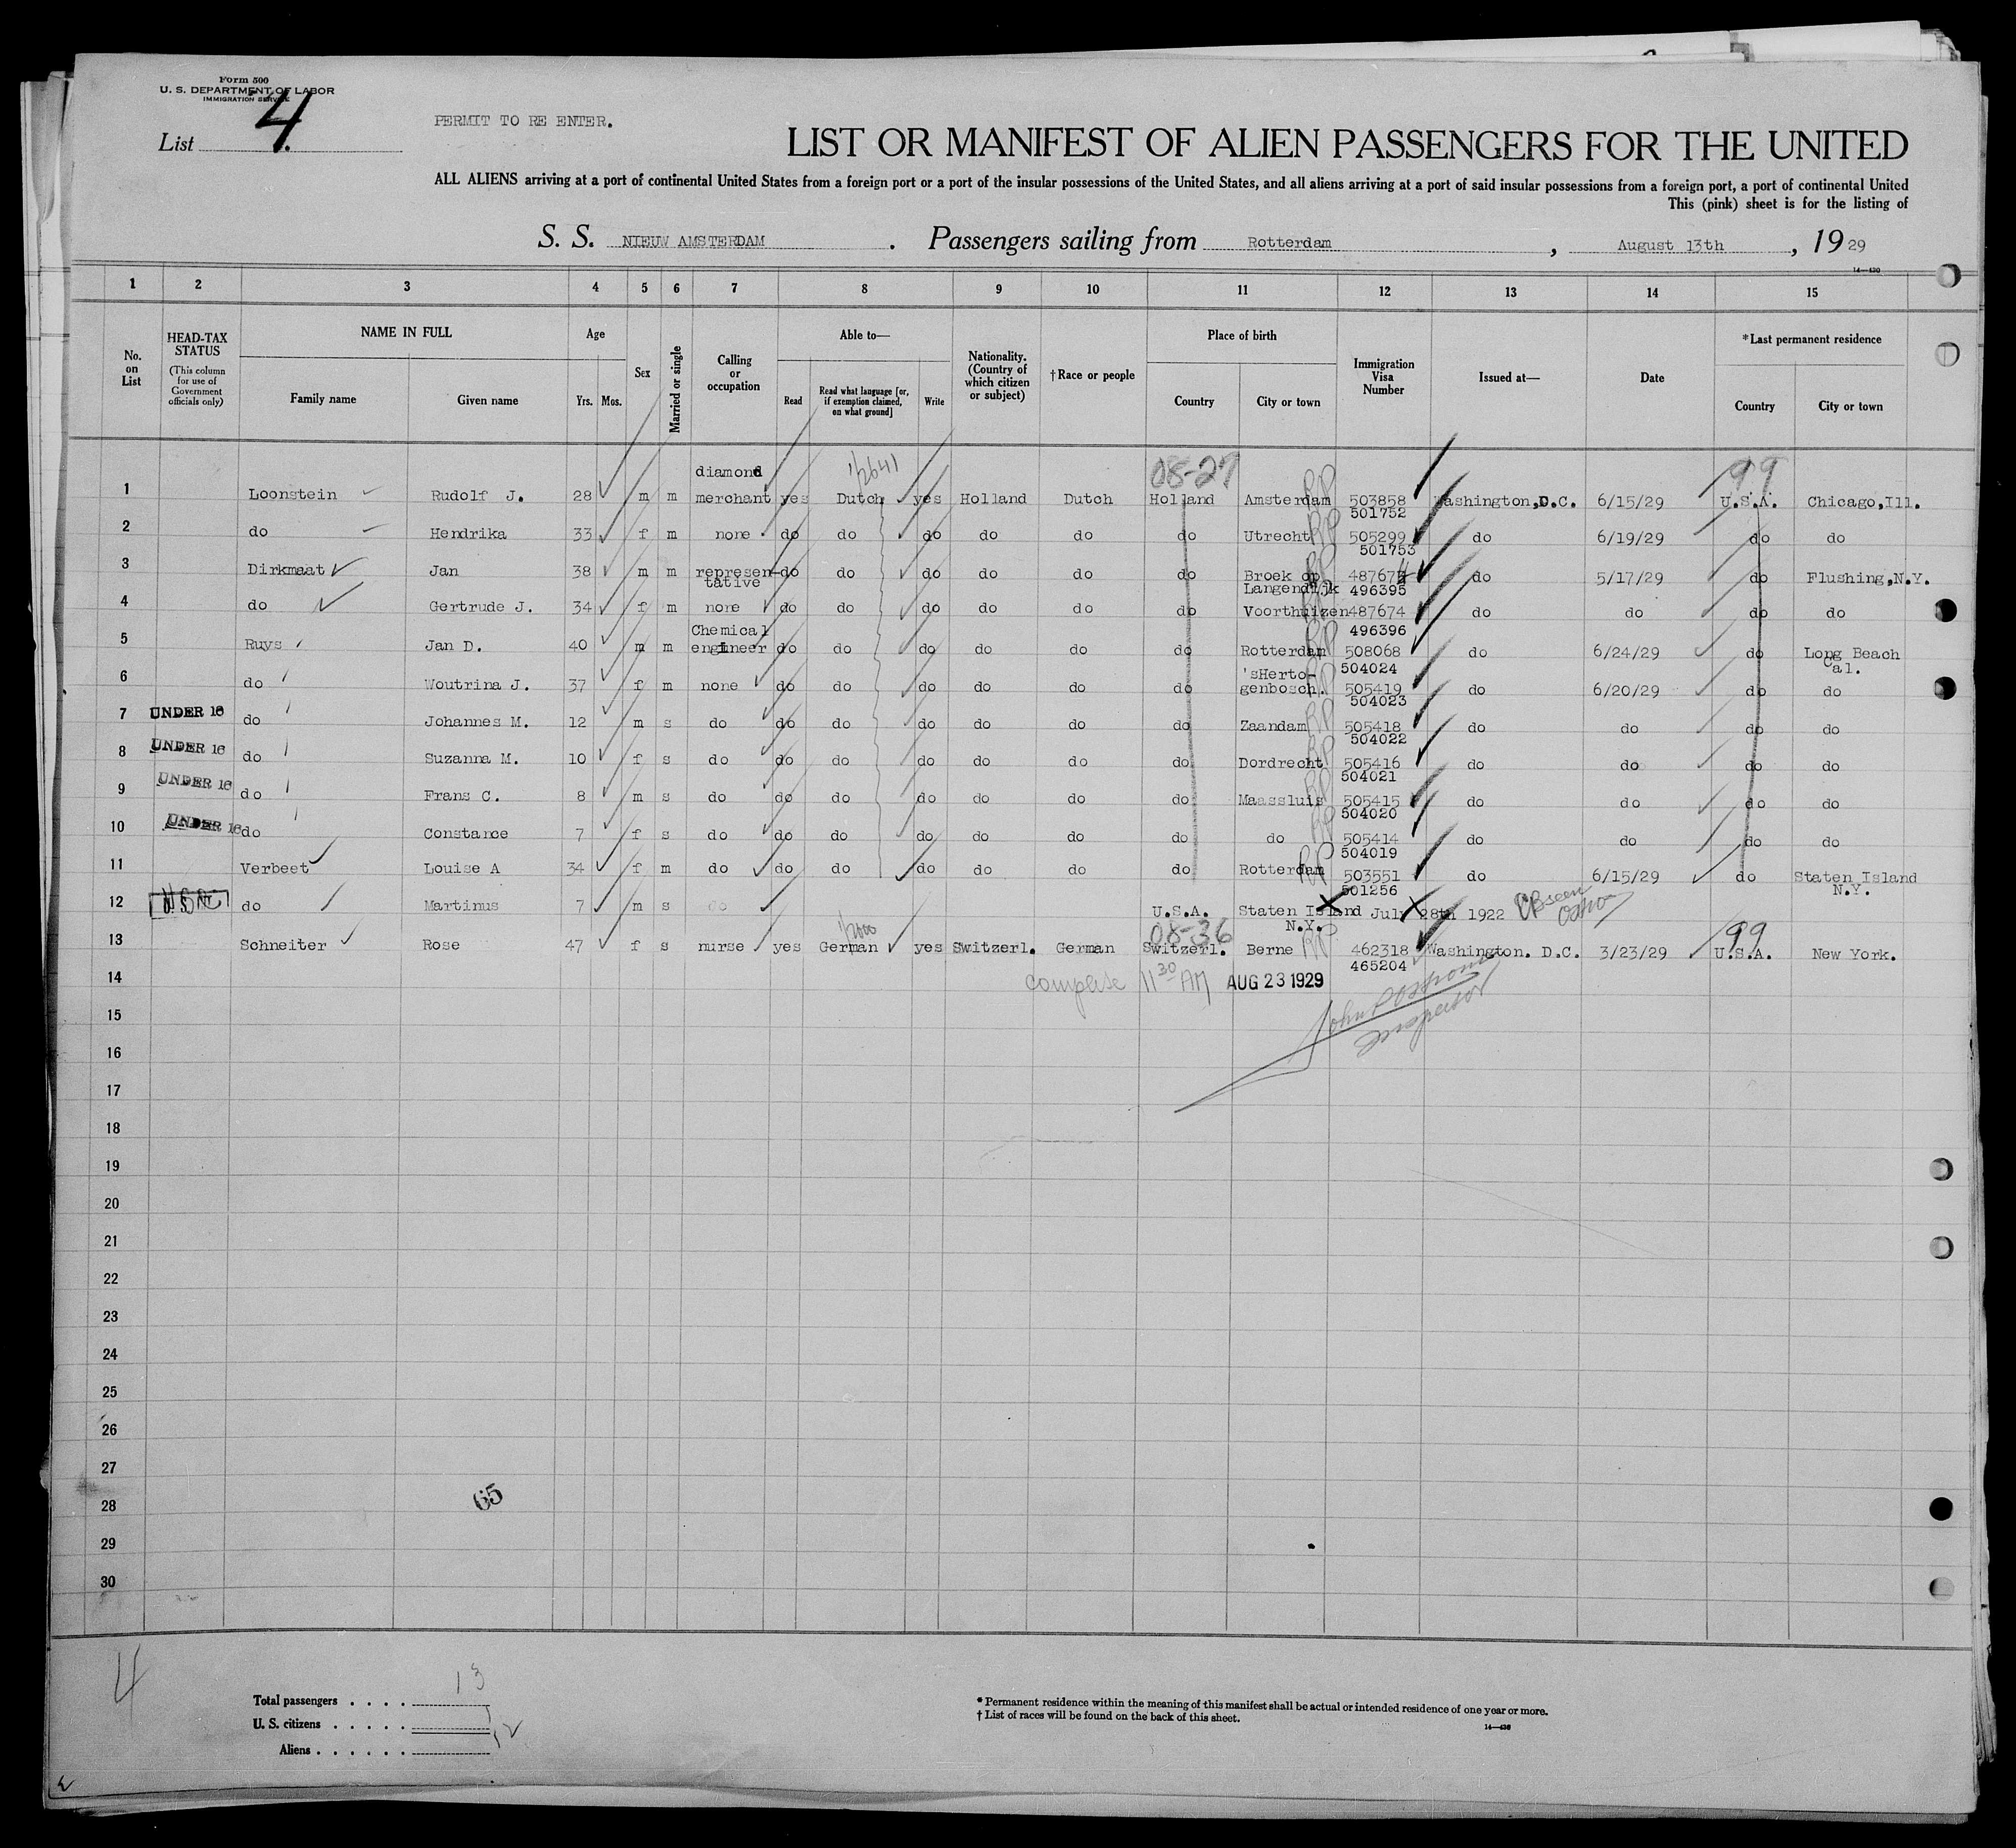 Form 500
U. S. DEPARTMENT OF LABOR
IMMIGRATION SERVICE
List 4.
PERMIT TO RE ENTER.
LIST OR MANIFEST OF ALIEN PASSENGERS FOR THE UNITED
ALL ALIENS arriving at a port of continental United States from a foreign port or a port of the insular possessions of the United States, and all aliens arriving at a port of said insular possessions from a foreign port, a port of continental United
This (pink) sheet is for the listing of
S. S. NIEUW AMSTERDAM . Passengers sailing from Rotterdam , August 13th , 19 29
14—430
1 2 3 4 5 6 7 8 9 10 11 12 13 14 15
No. on List HEAD-TAX STATUS (This column for use of Government officials only) NAME IN FULL Family name Given name Age Yrs. Mos. Sex Married or single Calling or occupation Able to— Read Read what language [or, if exemption claimed, on what ground] Write Nationality. (Country of which citizen or subject) †Race or people Place of birth Country City or town Immigration Visa Number Issued at— Date *Last permanent residence Country City or town
diamond 12641 08-27 99
1 Loonstein Rudolf J. 28 m m merchant yes Dutch yes Holland Dutch Holland Amsterdam RP 503858 Washington,D.C. 6/15/29 U.S.A. Chicago,Ill.
501752
2 do Hendrika 33 f m none do do do do do do Utrecht RP 505299 do 6/19/29 do do
501753
3 Dirkmaat Jan 38 m m represen- do do do do do do Broek op RP 487674 do 5/17/29 do Flushing,N.Y.
tative Langendijk 496395
4 do Gertrude J. 34 f m none do do do do do do Voorthuizen 487674 do do do do
Chemical 496396
5 Ruys Jan D. 40 m m engineer do do do do do do Rotterdam RP 508068 do 6/24/29 do Long Beach
'sHerto- 504024 Cal.
6 do Woutrina J. 37 f m none do do do do do do genbosch. RP 505419 do 6/20/29 do do
504023
7 UNDER 16 do Johannes M. 12 m s do do do do do do do Zaandam RP 505418 do do do do
504022
8 UNDER 16 do Suzanna M. 10 f s do do do do do do do Dordrecht RP 505416 do do do do
504021
9 UNDER 16 do Frans C. 8 m s do do do do do do do Maassluis RP 505415 do do do do
504020
10 UNDER 16 do Constance 7 f s do do do do do do do do RP 505414 do do do do
504019
11 Verbeet Louise A 34 f m do do do do do do do Rotterdam RP 503551 do 6/15/29 do Staten Island
501256 N.Y.
12 do Martinus 7 m s do U.S.A. Staten Island July 28th 1922
N.Y.
08-36 99
13 Schneiter Rose 47 f s nurse yes German yes Switzerl. German Switzerl. Berne RP 462318 Washington. D.C. 3/23/29 U.S.A. New York.
465204
14 complete 11 30 AM AUG 23 1929
Inspector
15
16
17
18
19
20
21
22
23
24
25
26
27
28
65
29
30
4
Total passengers . . . . 13
U. S. citizens . . . . . 1
Aliens . . . . . . 12
* Permanent residence within the meaning of this manifest shall be actual or intended residence of one year or more.
† List of races will be found on the back of this sheet.
14—430